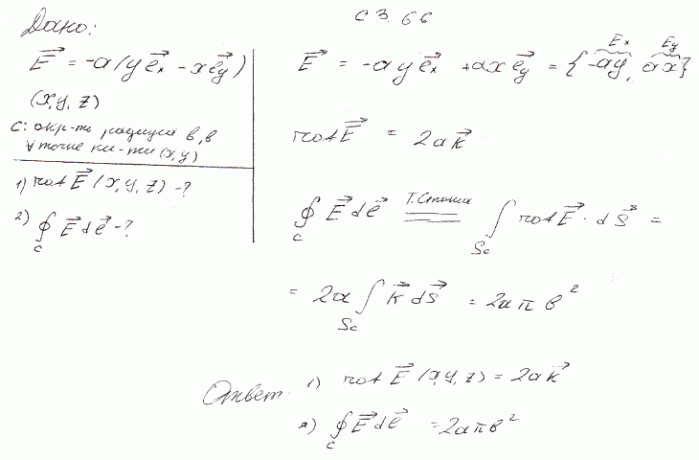 Дано:
с 3.66
E⃗ = -a(y e⃗x - x e⃗y)
(x, y, z)
C: окр-ть радиуса в, в
∀ точке пл-ти (x, y)
1) rot E⃗ (x, y, z) - ?
2) ∮c E⃗ dℓ⃗ - ?
E⃗ = -a y e⃗x + a x e⃗y = {-ay, ax}
Ex Ey
rot E⃗ = 2a k⃗
∮c E⃗ dℓ⃗ = Т. Стокса ∫Sc rot E⃗ · dS⃗ =
= 2a ∫Sc k⃗ dS⃗ = 2aπв²
Ответ: 1) rot E⃗ (x, y, z) = 2a k⃗
2) ∮c E⃗ dℓ⃗ = 2aπв²